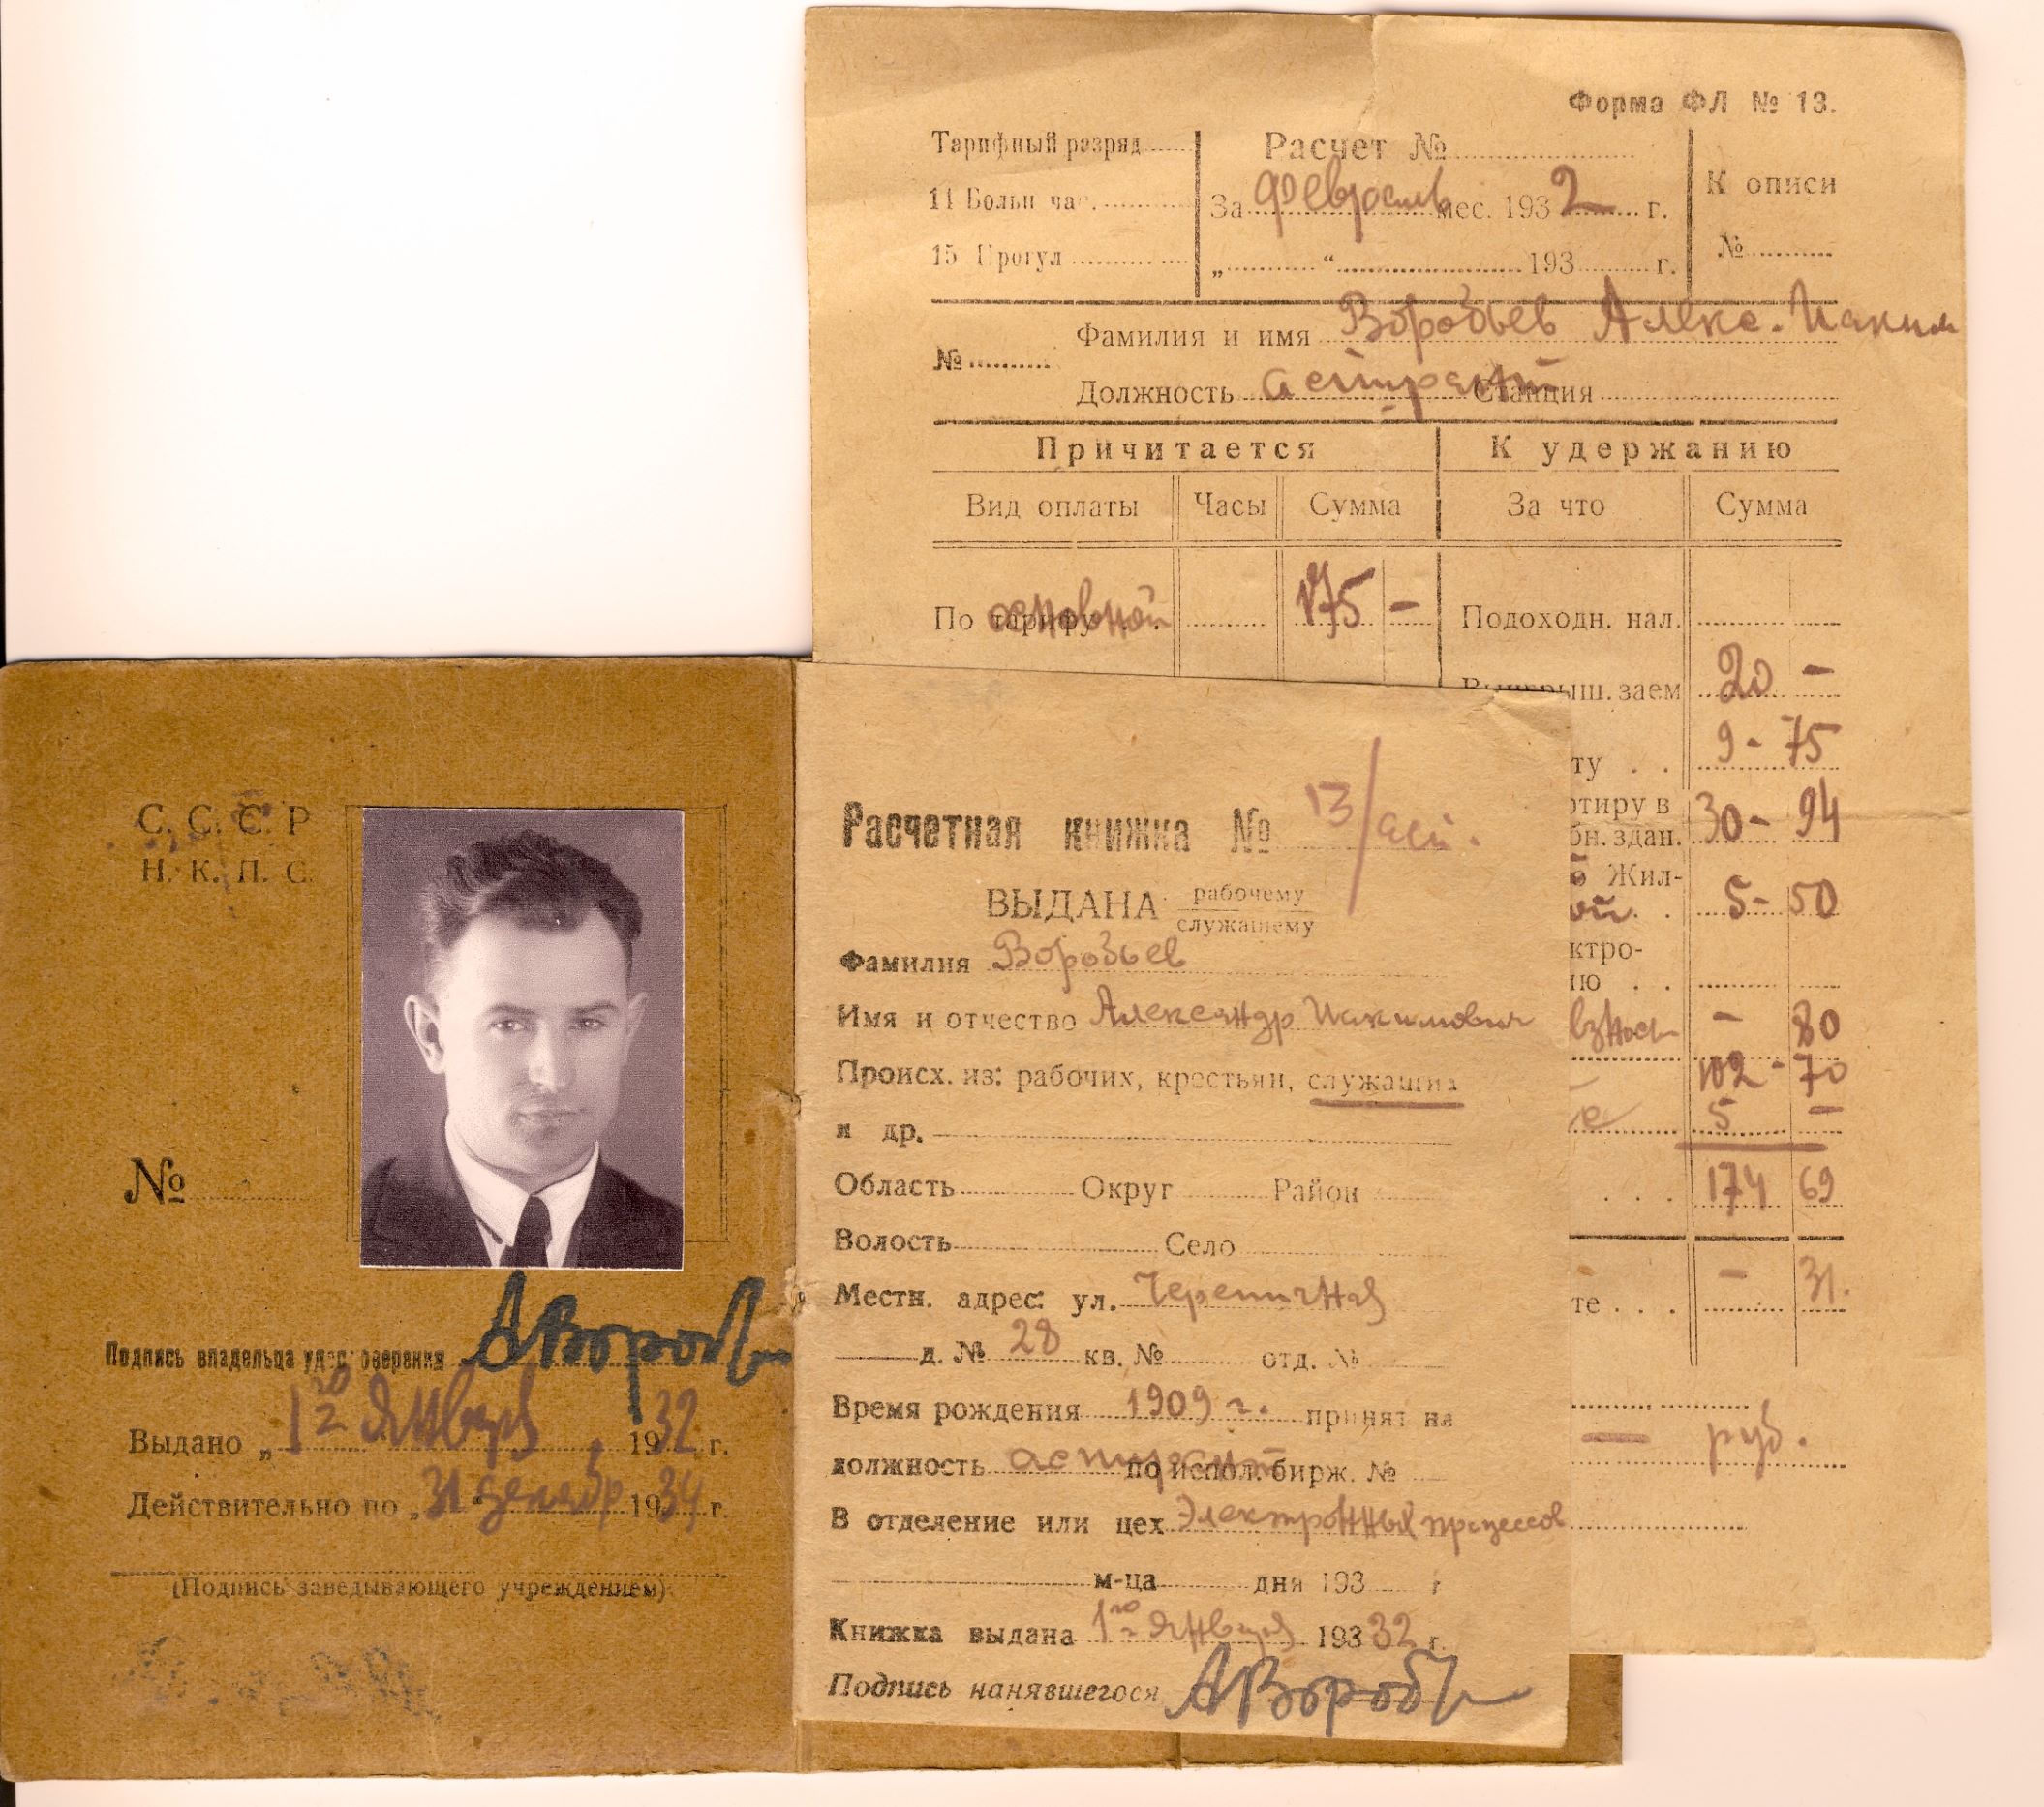 Форма ФЛ № 13.
Тарифный разряд
Расчет №
К описи
11 Больн час.
За февраль мес. 1932 г.
15 Прогул
„ “ 193 г.
№
Фамилия и имя Воробьев Алекс. Иаким
№
Должность аспирант Станция
Причитается
К удержанию
Вид оплаты Часы Сумма
За что Сумма
По тарифу основной 175 -
Подоходн. нал.
Выигрыш. заем 20 -
ту . . 9 - 75
ртиру в
бн. здан. 30 - 94
Жил-
ой. . 5 - 50
ктро-
ию . .
взнос - 80
102 - 70
е 5 -
. . . 174 69
те . . . - 31.
— руб.
С. С. С. Р
Н. К. П. С.
№
Подпись владельца удостоверения АВороб
Выдано „ 1го января 1932 г.
Действительно по „31 декабр 1934 г.
(Подпись заведывающего учреждением)
Расчетная книжка № 13/асп.
ВЫДАНА рабочему
служащему
Фамилия Воробьев
Имя и отчество Александр Иакимович
Происх. из: рабочих, крестьян, служащих
и др.
Область Округ Район
Волость Село
Местн. адрес: ул. Черепичная
д. № 28 кв. № отд. №
Время рождения 1909 г. принят на
должность аспирант по испол. бирж. №
В отделение или цех Электронных процессов
м-ца дня 193 г
Книжка выдана 1го января 193 32 г.
Подпись нанявшегося АВороб